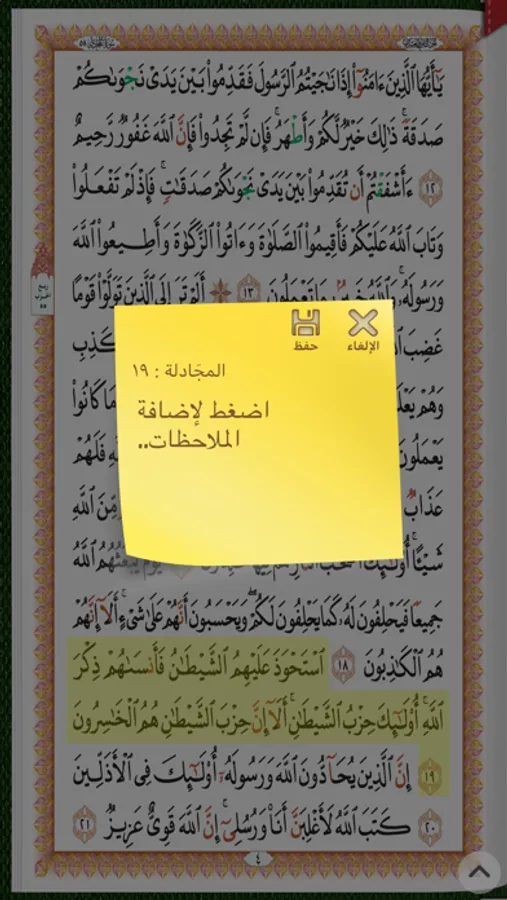 يَٰٓأَيُّهَا ٱلَّذِينَ ءَامَنُوٓا۟ إِذَا نَٰجَيْتُمُ ٱلرَّسُولَ فَقَدِّمُوا۟ بَيْنَ يَدَىْ نَجْوَىٰكُمْ
صَدَقَةً ۚ ذَٰلِكَ خَيْرٌ لَّكُمْ وَأَطْهَرُ ۚ فَإِن لَّمْ تَجِدُوا۟ فَإِنَّ ٱللَّهَ غَفُورٌ رَّحِيمٌ
١٢ ءَأَشْفَقْتُمْ أَن تُقَدِّمُوا۟ بَيْنَ يَدَىْ نَجْوَىٰكُمْ صَدَقَٰتٍ ۚ فَإِذْ لَمْ تَفْعَلُوا۟
وَتَابَ ٱللَّهُ عَلَيْكُمْ فَأَقِيمُوا۟ ٱلصَّلَوٰةَ وَءَاتُوا۟ ٱلزَّكَوٰةَ وَأَطِيعُوا۟ ٱللَّهَ
وَرَسُولَهُۥ ۚ وَٱللَّهُ خَبِيرٌۢ بِمَا تَعْمَلُونَ ١٣ أَلَمْ تَرَ إِلَى ٱلَّذِينَ تَوَلَّوْا۟ قَوْمًا
غَضِبَ
كَذِبِ
وَهُمْ
مَا كَانُوا۟
يَعْمَلُونَ
فَلَهُمْ
عَذَابٌ
مِّنَ ٱللَّهِ
شَيْـًٔا ۚ أُو۟لَٰٓئِكَ
يَوْمَ يَبْعَثُهُمُ ٱللَّهُ
جَمِيعًا فَيَحْلِفُونَ لَهُۥ كَمَا يَحْلِفُونَ لَكُمْ ۖ وَيَحْسَبُونَ أَنَّهُمْ عَلَىٰ شَىْءٍ ۚ أَلَآ إِنَّهُمْ
هُمُ ٱلْكَٰذِبُونَ ١٨ ٱسْتَحْوَذَ عَلَيْهِمُ ٱلشَّيْطَٰنُ فَأَنسَىٰهُمْ ذِكْرَ
ٱللَّهِ ۚ أُو۟لَٰٓئِكَ حِزْبُ ٱلشَّيْطَٰنِ ۚ أَلَآ إِنَّ حِزْبَ ٱلشَّيْطَٰنِ هُمُ ٱلْخَٰسِرُونَ
١٩ إِنَّ ٱلَّذِينَ يُحَآدُّونَ ٱللَّهَ وَرَسُولَهُۥٓ أُو۟لَٰٓئِكَ فِى ٱلْأَذَلِّينَ
٢٠ كَتَبَ ٱللَّهُ لَأَغْلِبَنَّ أَنَا۠ وَرُسُلِىٓ ۚ إِنَّ ٱللَّهَ قَوِىٌّ عَزِيزٌ ٢١
٤
الإلغاء
حفظ
المجَادلة : ١٩
اضغط لإضافة
الملاحظات..